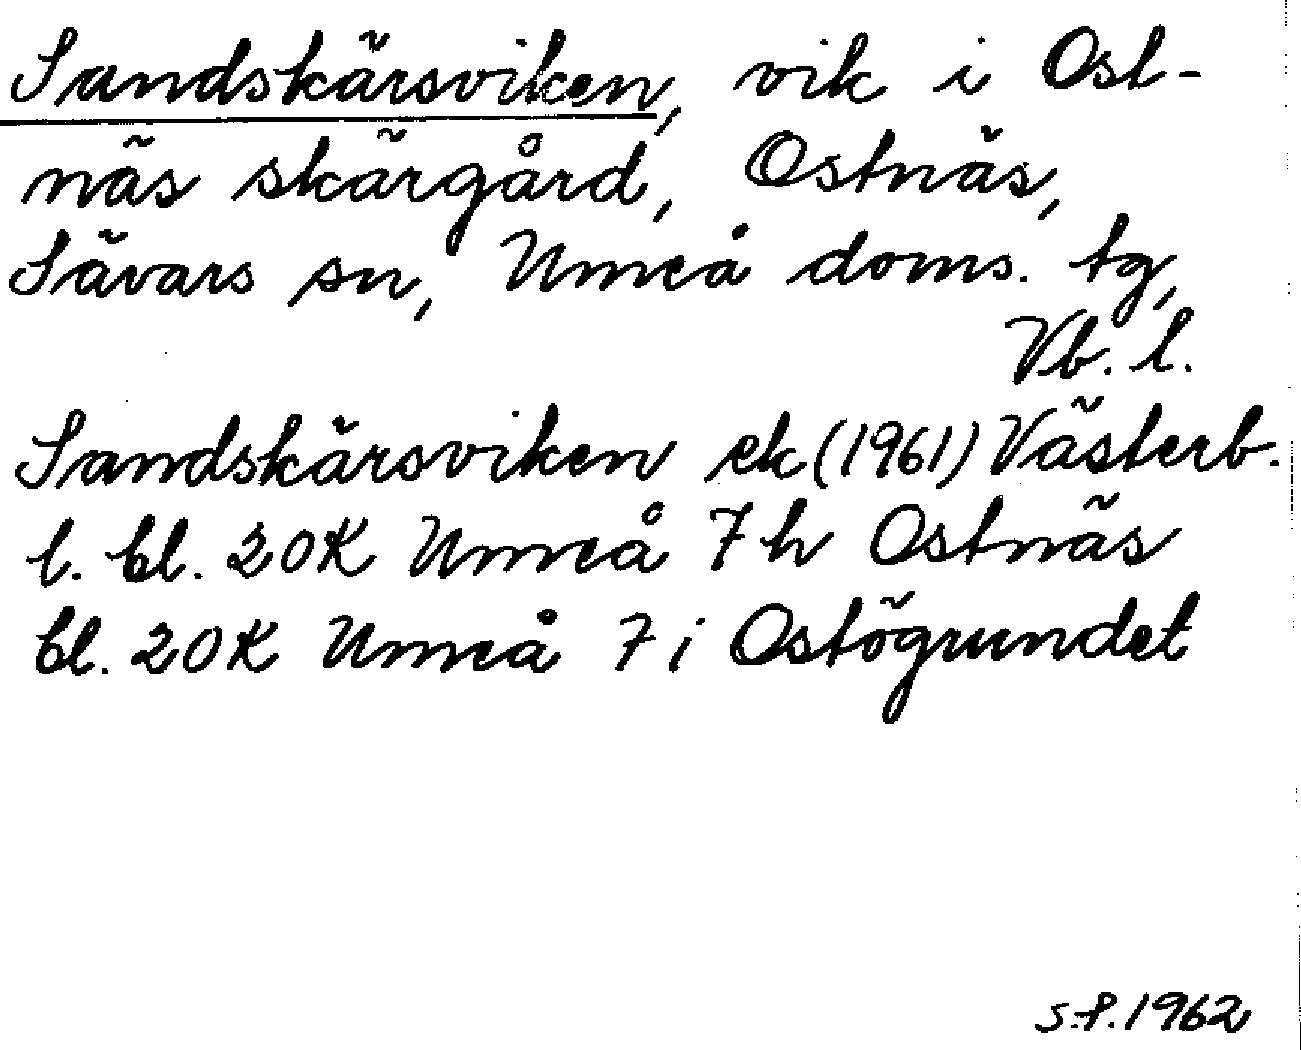 Sandskärsviken, vik i Ost-
näs skärgård, Ostnäs,
Sävars sn, Umeå doms. tg,
Vb. l.
Sandskärsviken ek (1961) Västerb.
l. bl. 20K Umeå 7h Ostnäs
bl. 20K Umeå 7i Ostögrundet
S.P. 1962